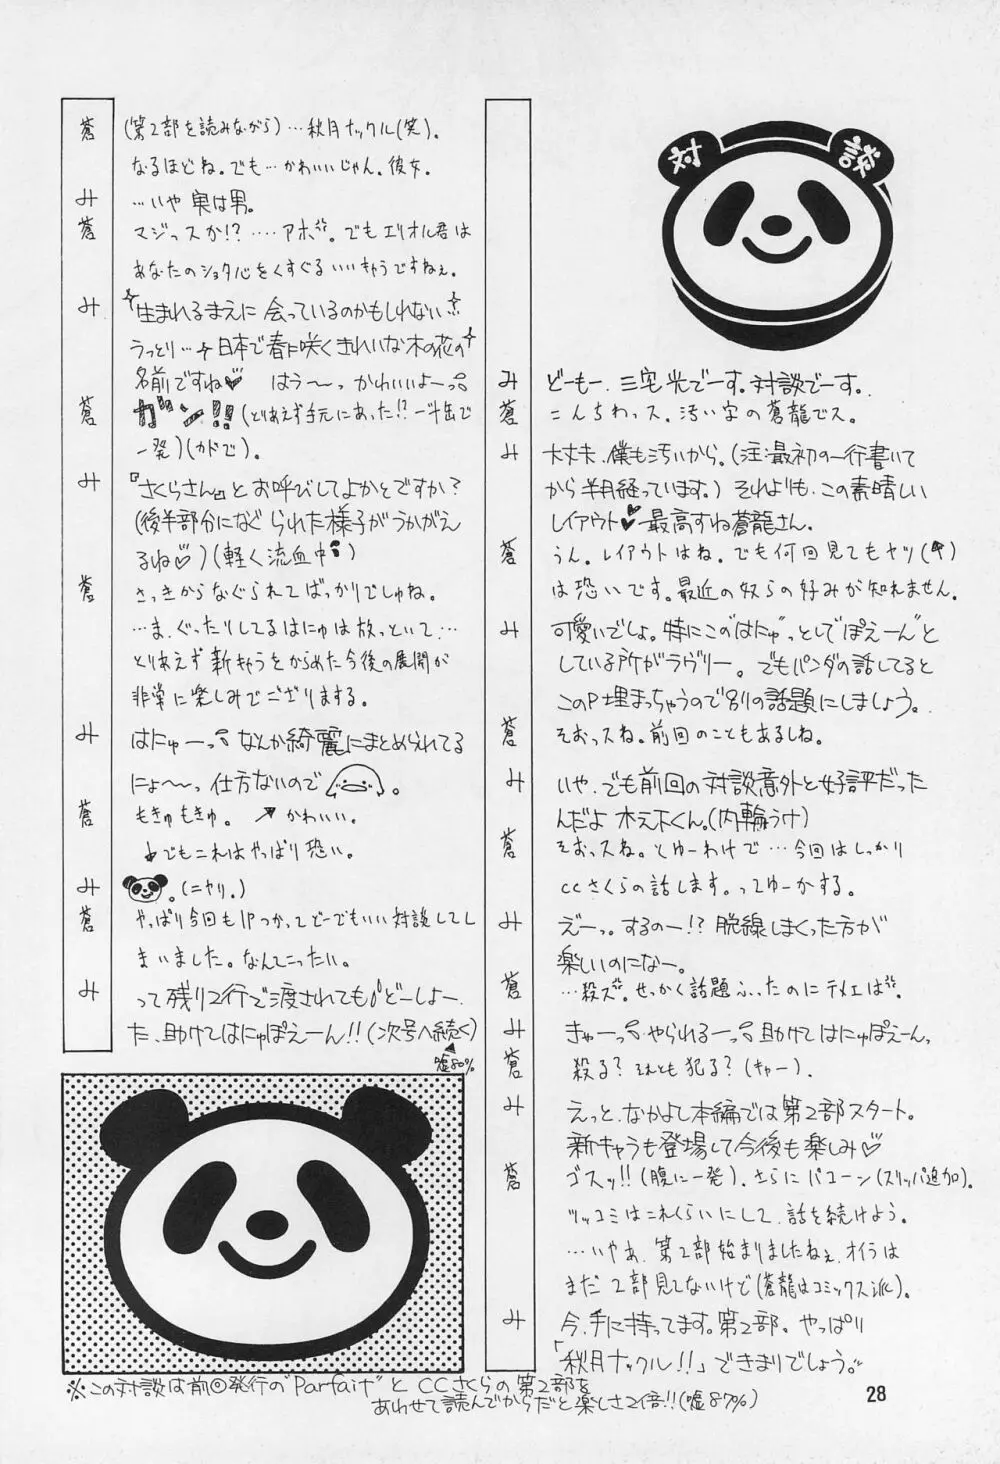 対談
み どーもー、三宅光でーす。対談でーす。
蒼 こんちわッス。汚い字の蒼龍でス。
み 大丈夫、僕も汚いから。(注:最初の一行書いて
から半月経っています。) それよりも、この素晴しい
レイアウト♥最高すね蒼龍さん。
蒼 うん。レイアウトはね。でも何回見てもヤツ( )
は恐いです。最近の奴らの好みが知れません。
み 可愛いでしょ。特にこの"はにゅ"っとして"ぽえーん"と
している所がラヴリー。でもパンダの話してると
このP埋まっちゃうので別の話題にしましょう。
蒼 そおっスね。前回のこともあるしね。
み いや、でも前回の対談意外と好評だった
んだよ木之下くん。(内輪うけ)
蒼 そおっスね。とゆーわけで…今回はしっかり
CCさくらの話します。ってゆーかする。
み えーっ。するのー!? 脱線しまくった方が
楽しいのになー。
蒼 …殺ズ。せっかく話題ふったのにテメエは゛。
み きゃーっ やられるーっ 助けてはにゅぽえーん。
蒼 殺る? それとも犯る? (キャー)。
み えっと、なかよし本編では第2部スタート。
新キャラも登場して今後も楽しみ♡
蒼 ゴスッ!! (腹に一発)、さらにパコーン(スリッパ追加)。
ツッコミはこれくらいにして、話を続けよう。
…いやあ、第2部始まりましたねぇ、オイラは
まだ2部見てないけど(蒼龍はコミックス派)。
み 今、手に持ってます。第2部。やっぱり
「秋月ナックル!!」できまりでしょう。
蒼 (第2部を読みながら)…秋月ナックル(笑)。
なるほどね。でも…かわいいじゃん。彼女。
み …いや 実は男。
蒼 マジっスか!? ‥‥アホ゛。でもエリオル君は
あなたのショタ心をくすぐるいいキャラですねぇ。
み "生まれるまえに 会っているのかもしれない"
うっとり…日本で春に咲くきれいな木の花の
名前ですね♡ はう〜っ かわいいよーっ
蒼 ガン!! (とりあえず手元にあった!? 一斗缶で
一発)(カドで)。
み 『さくらさん』とお呼びしてよかとですか?
(後半部分になぐられた様子がうかがえ
るね♡)(軽く流血中)
蒼 さっきからなぐられてばっかりでしゅね。
…ま、ぐったりしてるはにゅは放っといて…
とりあえず新キャラをからめた今後の展開が
非常に楽しみでござりまする。
み はにゅーっ なんか綺麗にまとめられてる
にょ〜っ 仕方ないので 。
蒼 もきゅもきゅ。↗かわいい。
でもこれはやっぱり恐い。
み 。(ニヤリ。)
蒼 やっぱり今回も1Pつかってどーでもいい対談してし
まいました。なんてこったい。
み って残り2行で渡されても♪どーしよー
た、助けてはにゅぽえーん!! (次号へ続く)
嘘80%
※この対談は前回発行の"Parfait"とCCさくらの第2部を
あわせて読んでからだと楽しさ2倍!! (嘘87%)
28